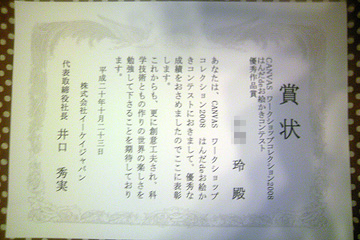 賞状
CANVAS ワークショップコレクション2008
はんだdeお絵かきコンテスト
優秀作品賞
玲 殿
あなたは、CANVAS ワークショップ
コレクション2008 はんだdeお絵か
きコンテストにおきまして、優秀な
成績をおさめましたのでここに表彰
します。
これからも、更に創意工夫され、科
学技術ともの作りの世界の楽しさを
勉強して下さることを期待しており
ます。
平成二十年十月二十三日
株式会社イーケイジャパン
代表取締役社長 井口 秀実